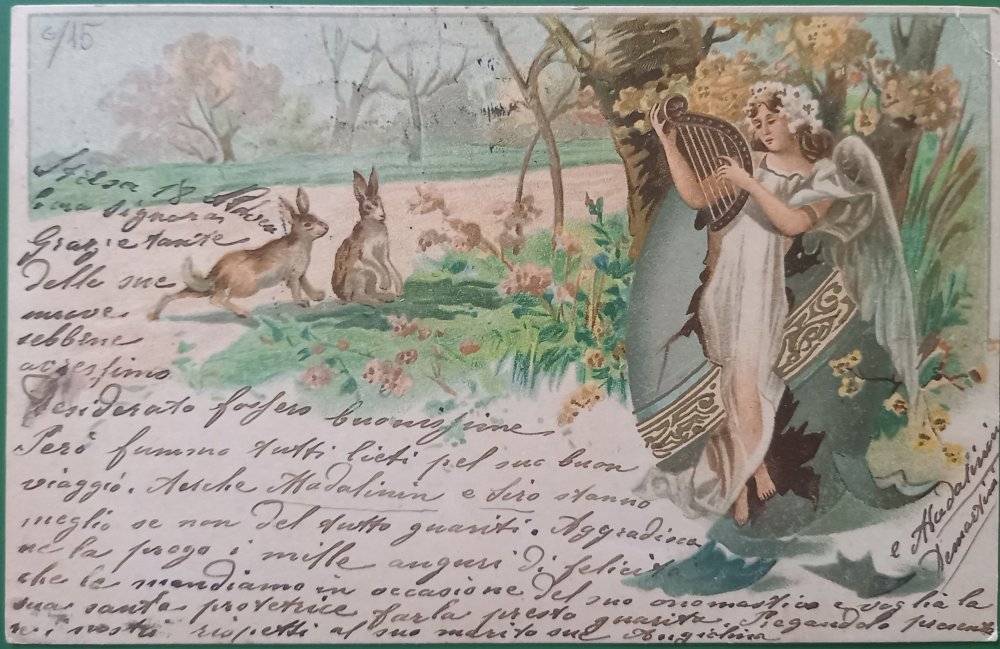 6/15
Gen.ma signora
Grazie tante
delle sue
nuove
sebbene
avressimo
desiderato fossero buonissime
Però fummo tutti lieti pel suo buon
viaggio. Anche Madalinin e Siro stanno
meglio se non del tutto guariti. Aggradisca
ne la prego i mille auguri di felicità
che le mandiamo in occasione del suo onomastico e voglia la
sua santa protettrice farla presto guarita. Pregandolo presenta
re i nostri rispetti al suo marito sue Angiolina
e Madalinin